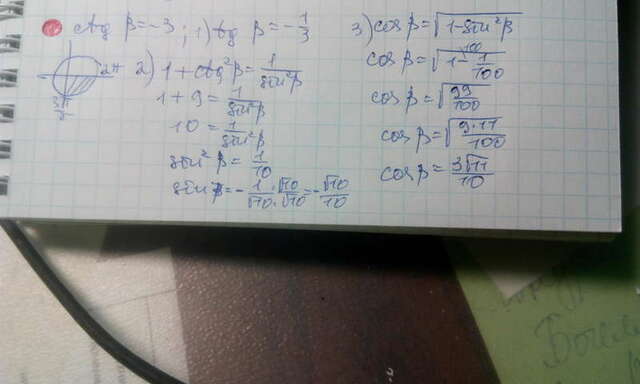 ctg β = -3 ; 1) tg β = -1/3
2π
3π/2
2) 1 + ctg²β = 1/sin²β
1 + 9 = 1/sin²β
10 = 1/sin²β
sin²β = 1/10
sin β = - 1/√10 · √10/√10 = - √10/10
3) cos β = √(1-sin²β)
cos β = √(1 - 1/100)
cos β = √(99/100)
cos β = √(9·11/100)
cos β = 3√11/10